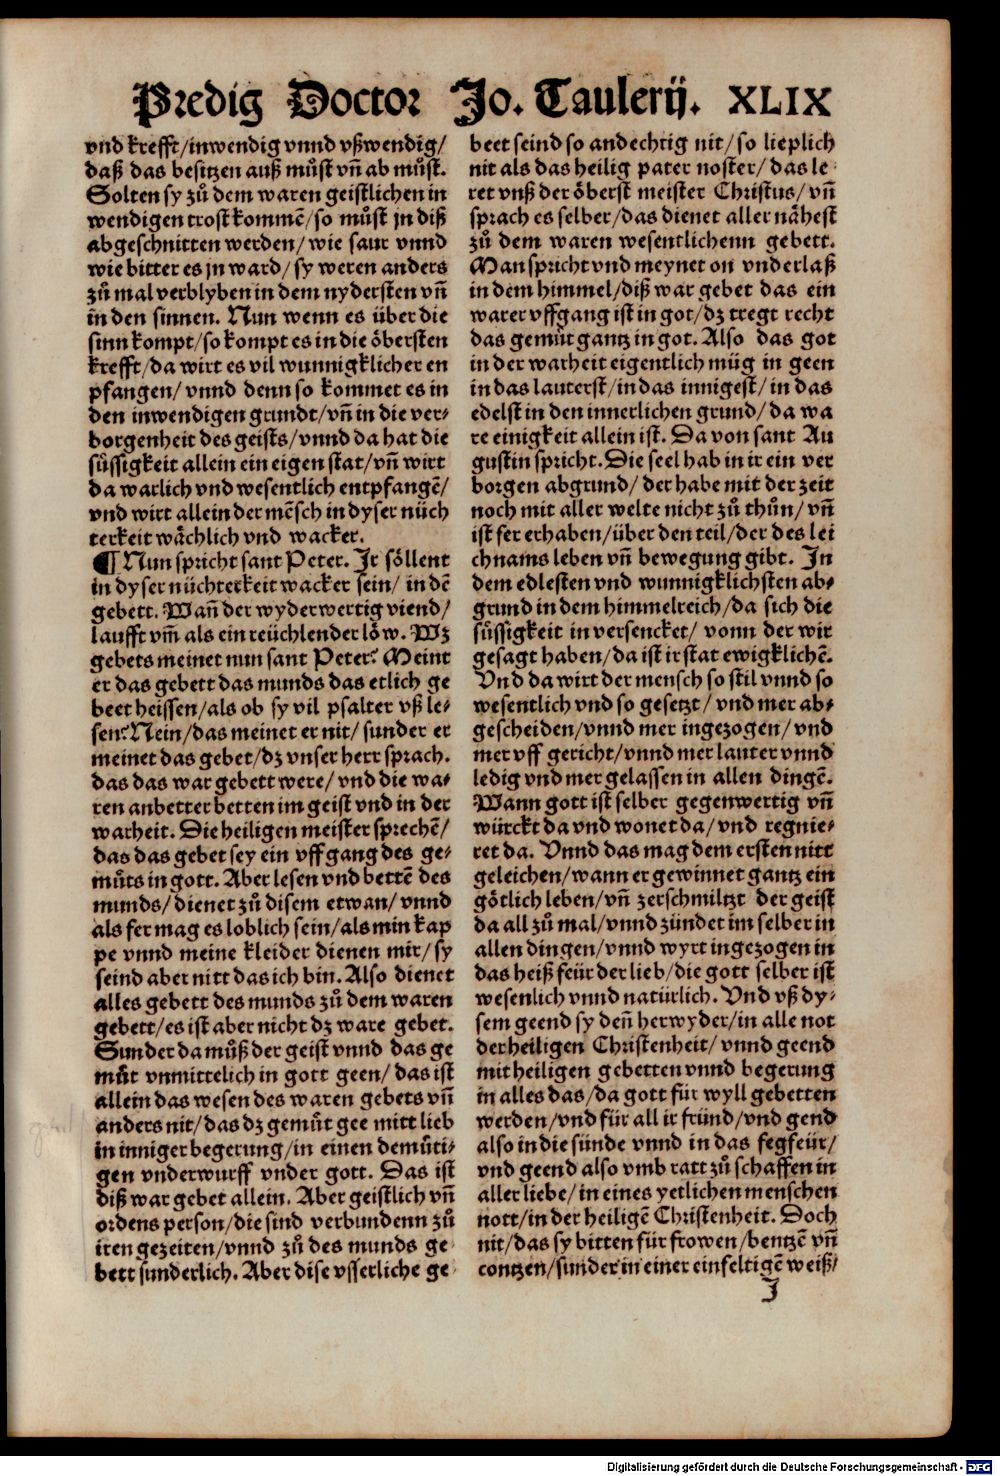 Predig Doctor Jo. Taulerij. XLIX
vnd krefft/inwendig vnnd vßwendig/
daß das besitzen auß můst vñ ab můst.
Solten sy zů dem waren geistlichen in
wendigen trost kommē/so můst jn diß
abgeschnitten werden/wie saur vnnd
wie bitter es jn ward/sy weren anders
zů mal verblyben in dem nydersten vñ
in den sinnen. Nun wenn es über die
sinn kompt/so kompt es in die öbersten
krefft/da wirt es vil wunnigklicher en
pfangen/vnnd denn so kommet es in
den inwendigen grundt/vñ in die ver⸗
borgenheit des geists/vnnd da hat die
süssigkeit allein ein eigen stat/vñ wirt
da warlich vnd wesentlich entpfangē/
vnd wirt allein der mēsch in dyser nüch
terkeit wächlich vnd wacker.
¶ Nun spricht sant Peter. Ir söllent
in dyser nüchterkeit wacker sein/in dē
gebett. Wañ der wyderwertig viend/
laufft vm̄ als ein reüchlender löw. Wz
gebets meinet nun sant Peter? Meint
er das gebett das munds das etlich ge
beet heissen/als ob sy vil psalter vß le⸗
sen? Nein/das meinet er nit/sunder er
meinet das gebet/dz vnser herr sprach.
das das war gebett were/vnd die wa⸗
ren anbetter betten im geist vnd in der
warheit. Die heiligen meister sprechē/
das das gebet sey ein vffgang des ge⸗
můts in gott. Aber lesen vnd bettē des
munds/dienet zů disem etwan/vnnd
als fer mag es loblich sein/als min kap
pe vnnd meine kleider dienen mir/sy
seind aber nitt das ich bin. Also dienet
alles gebett des munds zů dem waren
gebett/es ist aber nicht dz ware gebet.
Sunder da můß der geist vnnd das ge
můt vnmittelich in gott geen/das ist
allein das wesen des waren gebets vñ
anders nit/das dz gemůt gee mitt lieb
in inniger begerung/in einen demůti⸗
gen vnderwurff vnder gott. Das ist
diß war gebet allein. Aber geistlich vñ
ordens person/die sind verbundenn zů
iren gezeiten/vnnd zů des munds ge
bett sunderlich. Aber dise vsserliche ge
beet seind so andechtig nit/so lieplich
nit als das heilig pater noster/das le
ret vnß der öberst meister Christus/vñ
sprach es selber/das dienet aller nähest
zů dem waren wesentlichenn gebett.
Man spricht vnd meynet on vnderlaß
in dem himmel/diß war gebet das ein
warer vffgang ist in got/dz tregt recht
das gemůt gantz in got. Also das got
in der warheit eigentlich müg in geen
in das lauterst/in das innigest/in das
edelst in den innerlichen grund/da wa
re einigkeit allein ist. Da von sant Au
gustin spricht. Die seel hab in ir ein ver
borgen abgrund/der habe mit der zeit
noch mit aller welte nicht zů thůn/vñ
ist fer erhaben/über den teil/der des lei
chnams leben vñ bewegung gibt. In
dem edlesten vnd wunnigklichsten ab⸗
grund in dem himmelreich/da sich die
süssigkeit in versencket/vonn der wir
gesagt haben/da ist ir stat ewigklichē.
Vnd da wirt der mensch so stil vnnd so
wesentlich vnd so gesetzt/vnd mer ab⸗
gescheiden/vnnd mer ingezogen/vnd
mer vff gericht/vnnd mer lauter vnnd
ledig vnd mer gelassen in allen dingē.
Wann gott ist selber gegenwertig vñ
würckt da vnd wonet da/vnd regnie⸗
ret da. Vnnd das mag dem ersten nitt
geleichen/wann er gewinnet gantz ein
götlich leben/vñ zerschmiltzt der geist
da all zů mal/vnnd zündet im selber in
allen dingen/vnnd wyrt ingezogen in
das heiß feür der lieb/die gott selber ist
wesenlich vnnd natürlich. Vnd vß dy⸗
sem geend sy deñ herwyder/in alle not
der heiligen Christenheit/vnnd geend
mit heiligen gebetten vnnd begerung
in alles das/da gott für wyll gebetten
werden/vnd für all ir fründ/vnd gend
also in die sünde vnnd in das fegfeür/
vnd geend also vmb ratt zů schaffen in
aller liebe/in eines yetlichen menschen
nott/in der heiligē Christenheit. Doch
nit/das sy bitten für frowen/bentzē vñ
contzen/sunder in einer einfeltigē weiß/
J
Digitalisierung gefördert durch die Deutsche Forschungsgemeinschaft - DFG